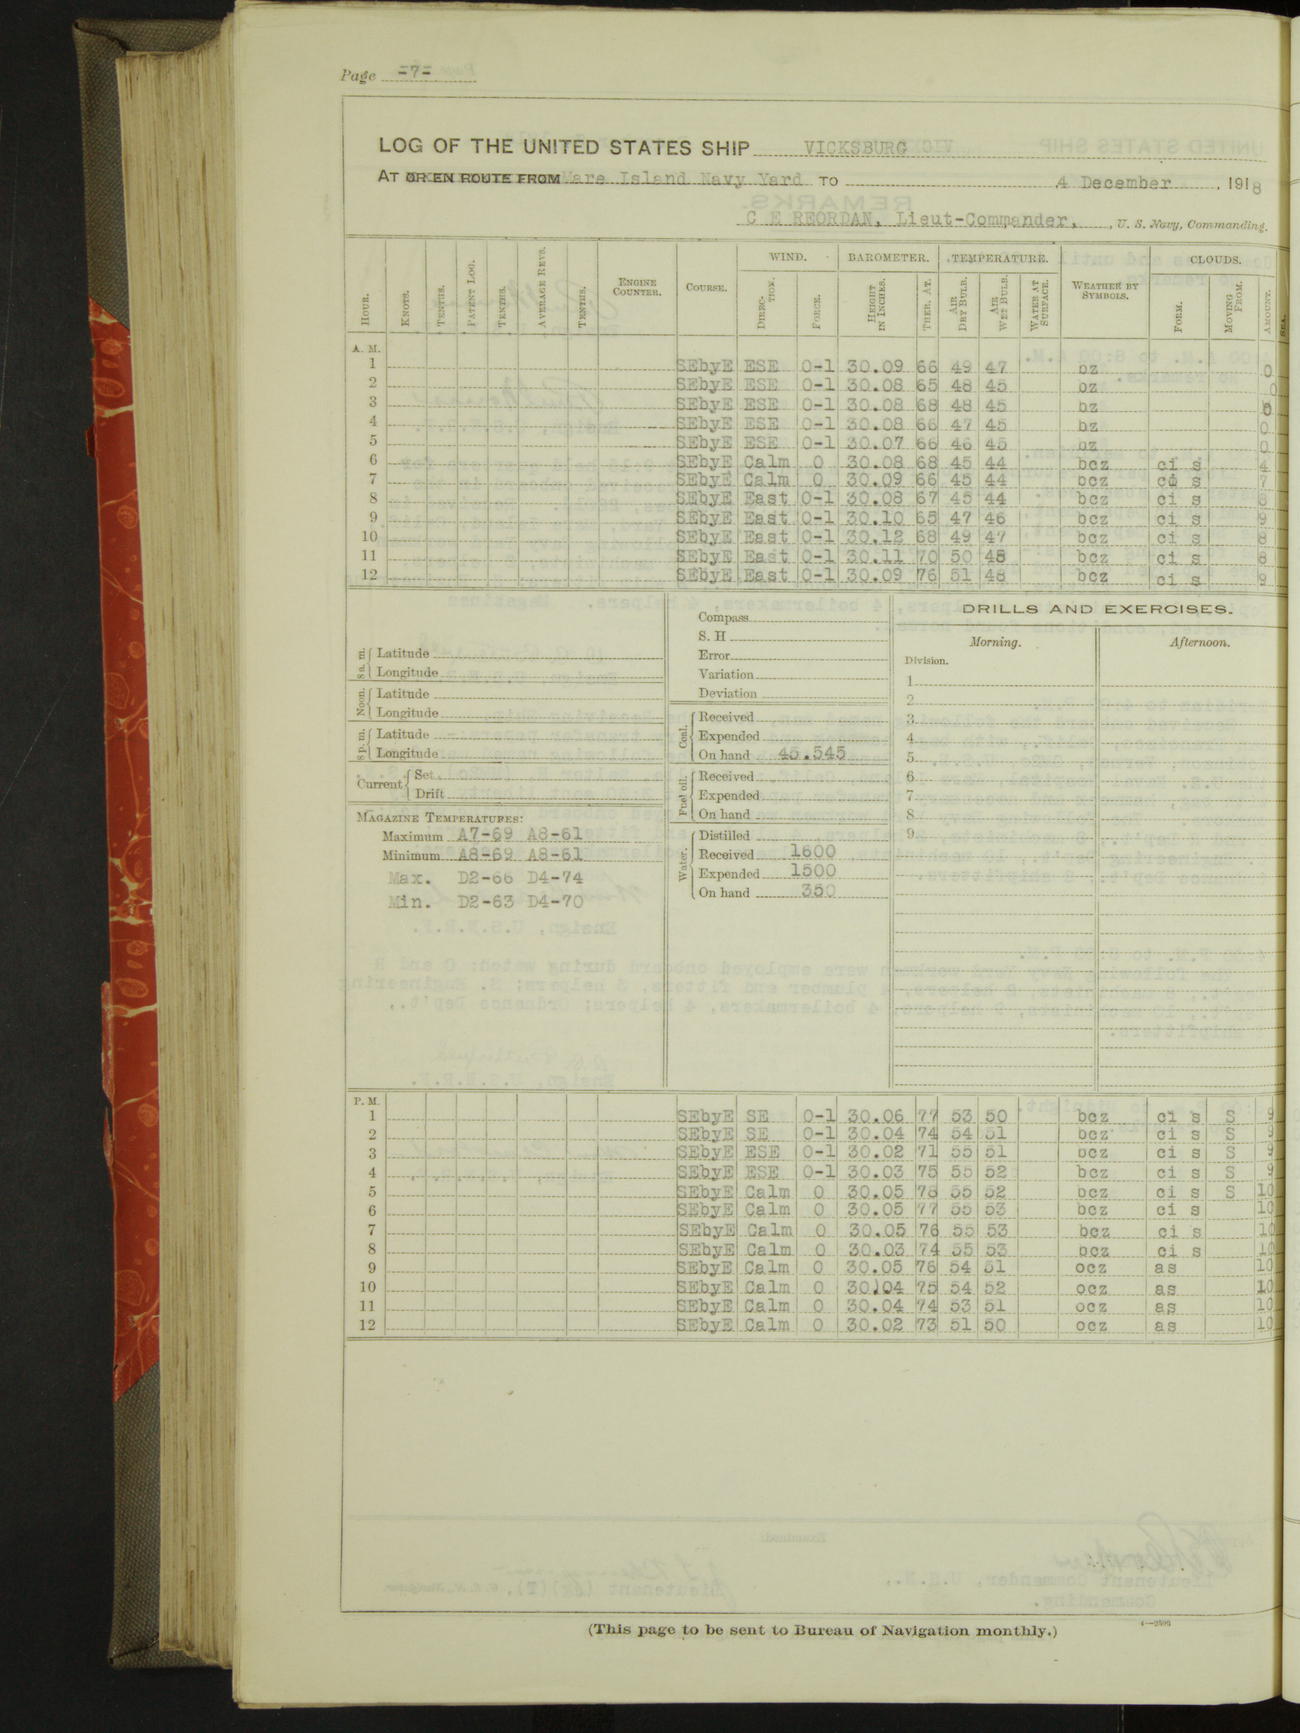 Page -7-
LOG OF THE UNITED STATES SHIP VICKSBURG
AT OR EN ROUTE FROM Mare Island Navy Yard TO 4 December, 1918
C E REORDAN, Lieut-Commander, , U. S. Navy, Commanding.
WIND. BAROMETER. TEMPERATURE. CLOUDS.
HOUR. KNOTS. TENTHS. PATENT LOG. TENTHS. AVERAGE REVS. TENTHS. ENGINE COUNTER. COURSE. DIREC-TION. FORCE. HEIGHT IN INCHES. THER. AT. AIR DRY BULB. AIR WET BULB. WATER AT SURFACE. WEATHER BY SYMBOLS. FORM. MOVING FROM. AMOUNT. SEA.
A. M.
1 SEbyE ESE 0-1 30.09 66 49 47 bz 0
2 SEbyE ESE 0-1 30.08 65 48 45 bz 0
3 SEbyE ESE 0-1 30.08 68 48 45 bz 0
4 SEbyE ESE 0-1 30.08 66 47 45 bz 0
5 SEbyE ESE 0-1 30.07 66 46 45 bz 0
6 SEbyE Calm 0 30.08 68 45 44 bcz ci s 4
7 SEbyE Calm 0 30.09 66 45 44 bcz ci s 7
8 SEbyE East 0-1 30.08 67 45 44 bcz ci s 8
9 SEbyE East 0-1 30.10 65 47 46 bcz ci s 9
10 SEbyE East 0-1 30.12 68 49 47 bcz ci s 8
11 SEbyE East 0-1 30.11 70 50 48 bcz ci s 8
12 SEbyE East 0-1 30.09 76 51 48 bcz ci s 9
8 a. m. Latitude
Longitude
Noon. Latitude
Longitude
8 p. m. Latitude
Longitude
Current Set
Drift
MAGAZINE TEMPERATURES:
Maximum A7-69 A8-61
Minimum A8-69 A8-61
Max. D2-66 D4-74
Min. D2-63 D4-70
Compass
S. H
Error
Variation
Deviation
Coal. Received
Expended
On hand 45.545
Fuel oil. Received
Expended
On hand
Water. Distilled
Received 1600
Expended 1500
On hand 350
DRILLS AND EXERCISES.
Morning. Afternoon.
Division.
1
2
3
4
5
6
7
8
9
P. M.
1 SEbyE SE 0-1 30.06 77 53 50 bcz ci s S 9
2 SEbyE SE 0-1 30.04 74 54 51 bcz ci s S 9
3 SEbyE ESE 0-1 30.02 71 55 51 bcz ci s S 9
4 SEbyE ESE 0-1 30.03 75 55 52 bcz ci s S 9
5 SEbyE Calm 0 30.05 78 55 52 bcz ci s S 10
6 SEbyE Calm 0 30.05 77 55 53 bcz ci s 10
7 SEbyE Calm 0 30.05 76 55 53 bcz ci s 10
8 SEbyE Calm 0 30.03 74 55 53 bcz ci s 10
9 SEbyE Calm 0 30.05 76 54 51 ocz as 10
10 SEbyE Calm 0 30.04 75 54 52 ocz as 10
11 SEbyE Calm 0 30.04 74 53 51 ocz as 10
12 SEbyE Calm 0 30.02 73 51 50 ocz as 10
(This page to be sent to Bureau of Navigation monthly.)